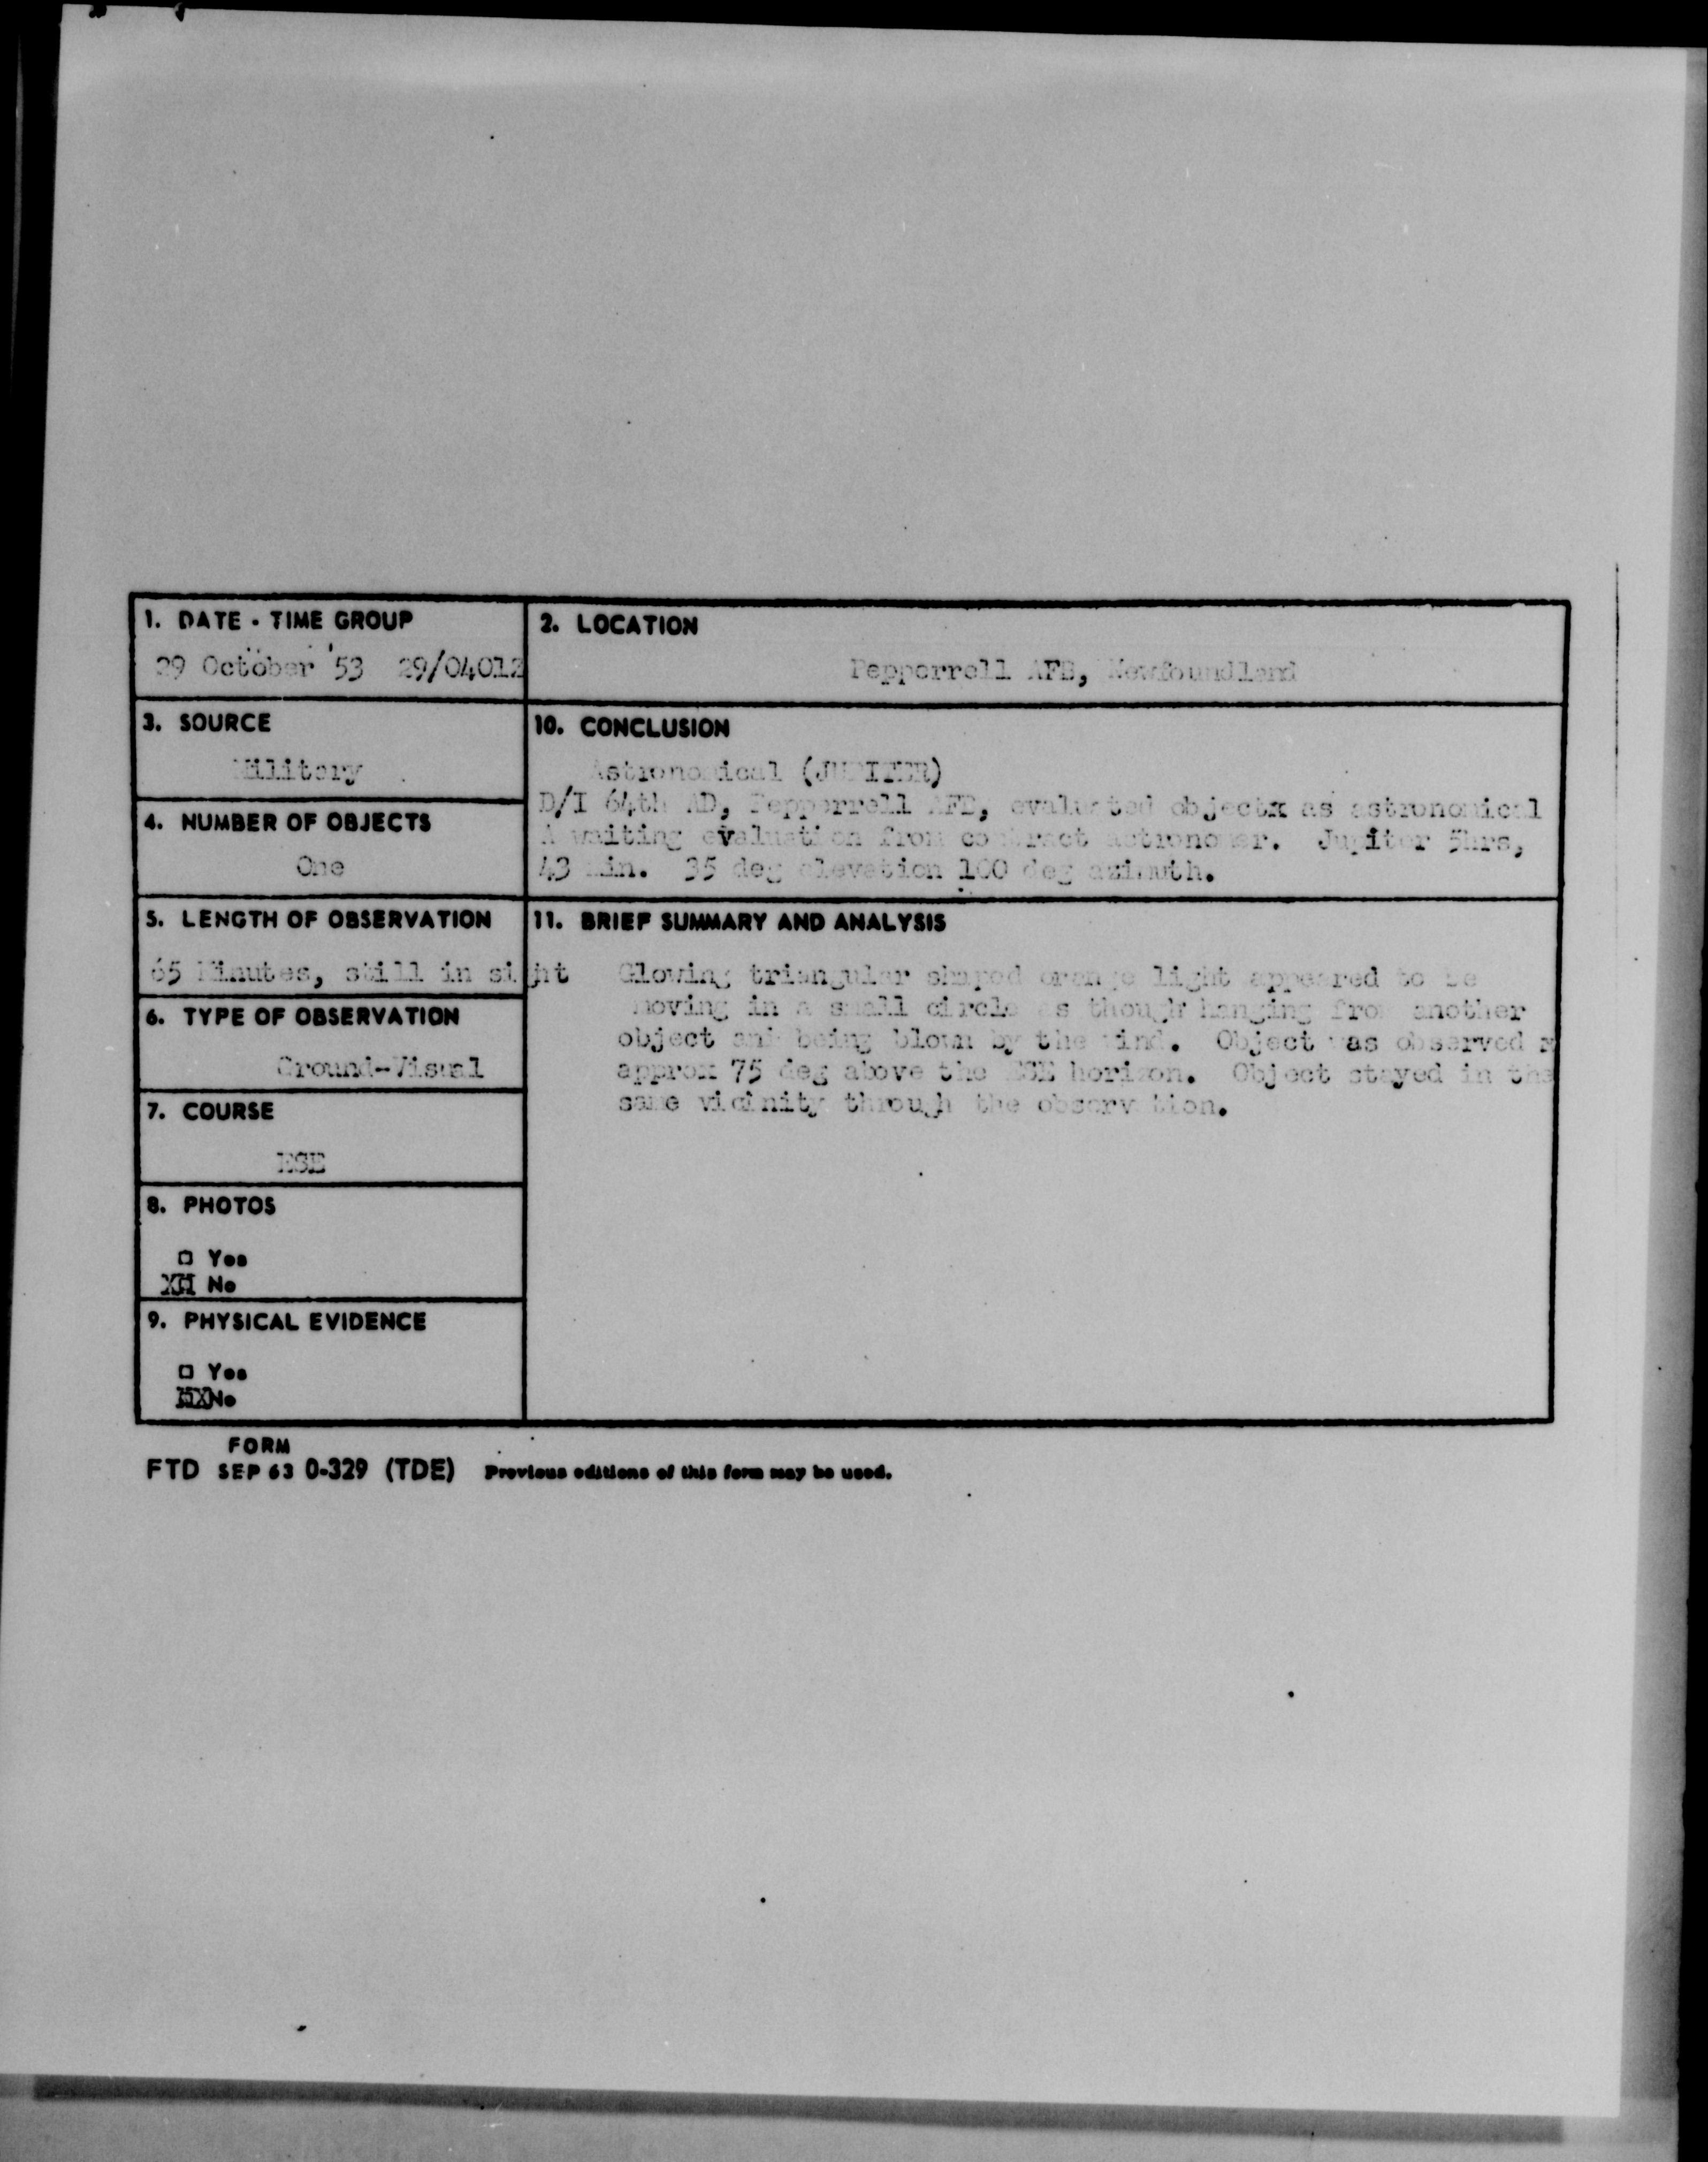 1. DATE - TIME GROUP
29 October '53 29/0401Z
2. LOCATION
Pepperrell AFB, Newfoundland
3. SOURCE
Military
10. CONCLUSION
Astronomical (JUPITER)
D/I 64th AD, Pepperrell AFB, evaluated objectx as astronomical
Awaiting evaluation from contract astronomer. Jupiter 5hrs,
43 min. 35 deg elevation 100 deg azimuth.
4. NUMBER OF OBJECTS
One
5. LENGTH OF OBSERVATION
65 Minutes, still in sight
11. BRIEF SUMMARY AND ANALYSIS
Glowing triangular shaped orange light appeared to be
moving in a small circle as though hanging from another
object and being blown by the wind. Object was observed
approx 75 deg above the ESE horizon. Object stayed in the
same vicinity through the observation.
6. TYPE OF OBSERVATION
Ground-Visual
7. COURSE
ESE
8. PHOTOS
□ Yes
XX No
9. PHYSICAL EVIDENCE
□ Yes
XX No
FORM
FTD SEP 63 0-329 (TDE) Previous editions of this form may be used.